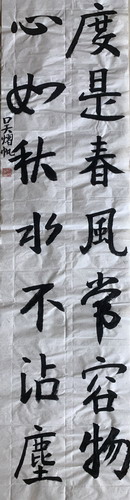 度是春風常容物
心如秋水不沾塵
吴熠帆